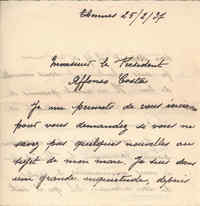 25/2/37
Monsieur le Président
Affonso Costa
Je me permets de vous
pour vous demandez si vous ne
savez pas quelques nouvelles au
sujet de mon mari. Je suis dans
une grande inquiétude, depuis